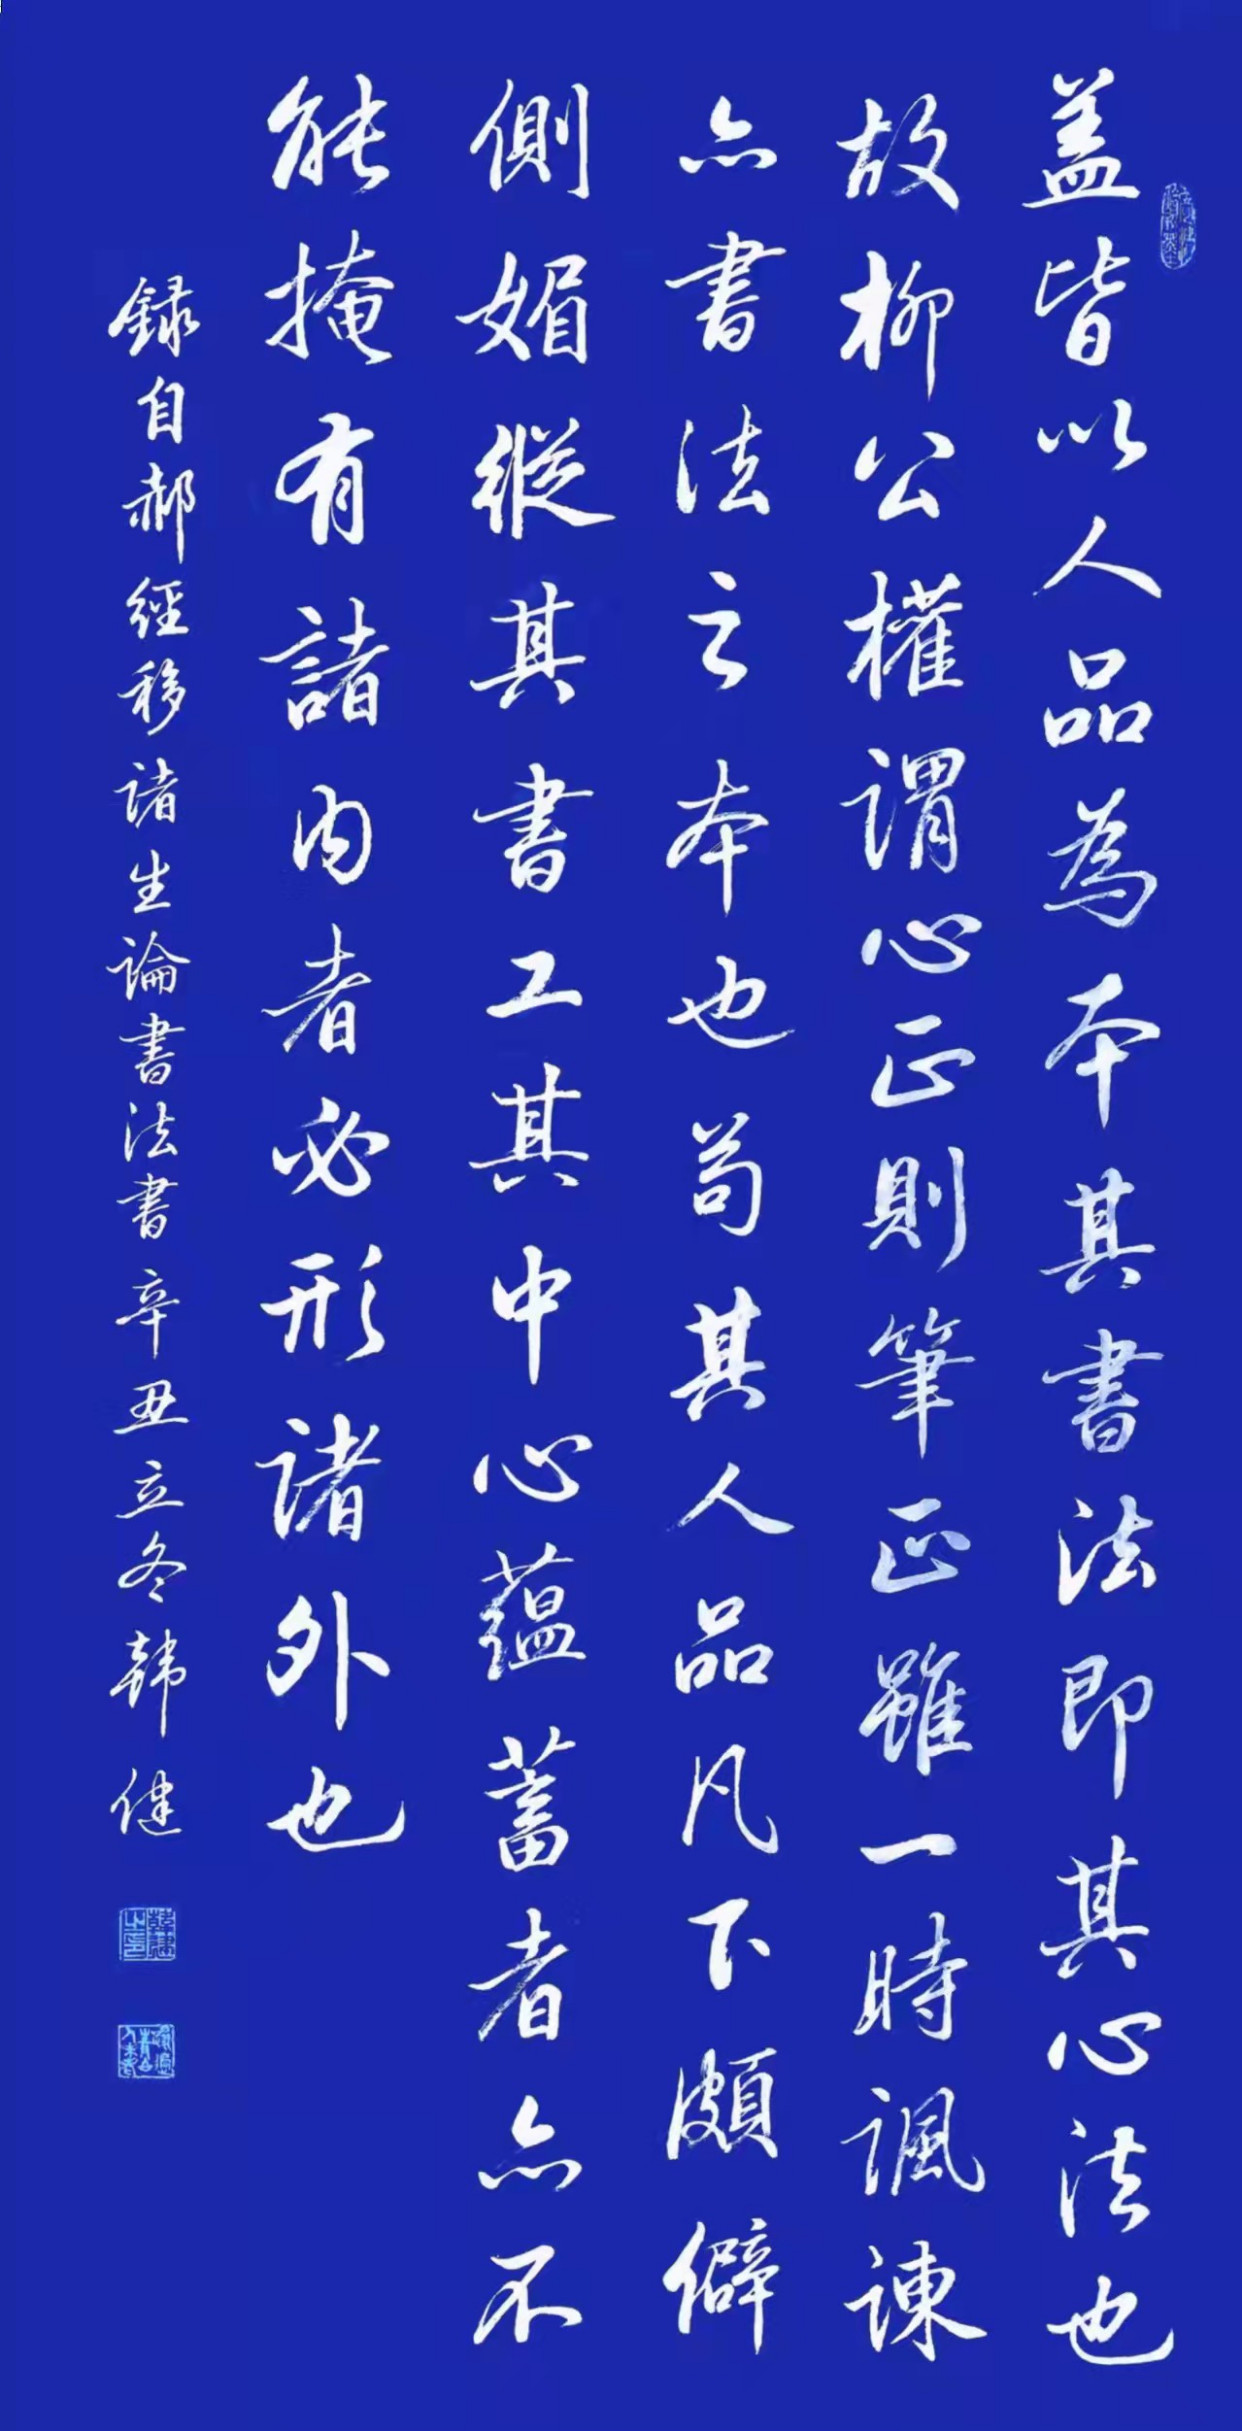 盖皆以人品為本其書法即其心法也
故柳公權謂心正則筆正雖一時諷諫
亦書法之本也苟其人品凡下頗僻
側媚縱其書工其中心蘊蓄者亦不
能掩有諸内者必形諸外也
録自郝經移諸生論書法書辛丑立冬韩健